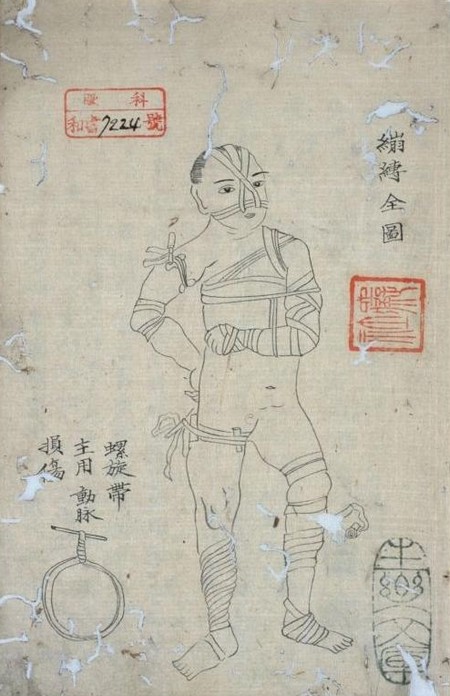 醫科
和書7224號
繃縛全圖
螺旋帶
主用 動脈
損傷